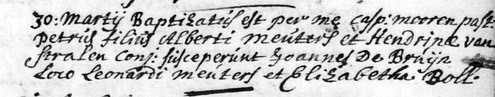 30: Martij Baptizatus est per me Casp: morren past.
petrus filius Alberti meuters et Hendrinæ van
stralen Conj: susceperunt Joannes De Bruijn
Loco Leonardi meuters et Elizabetha Boll.